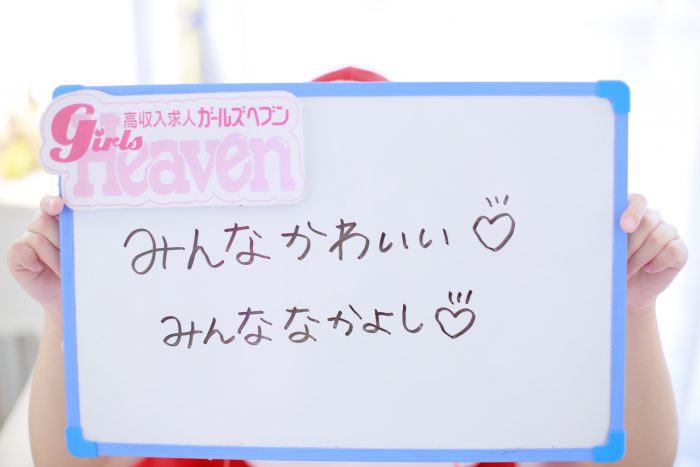 高収入求人ガールズヘブン
Girls Heaven
みんなかわいい♡
みんななかよし♡